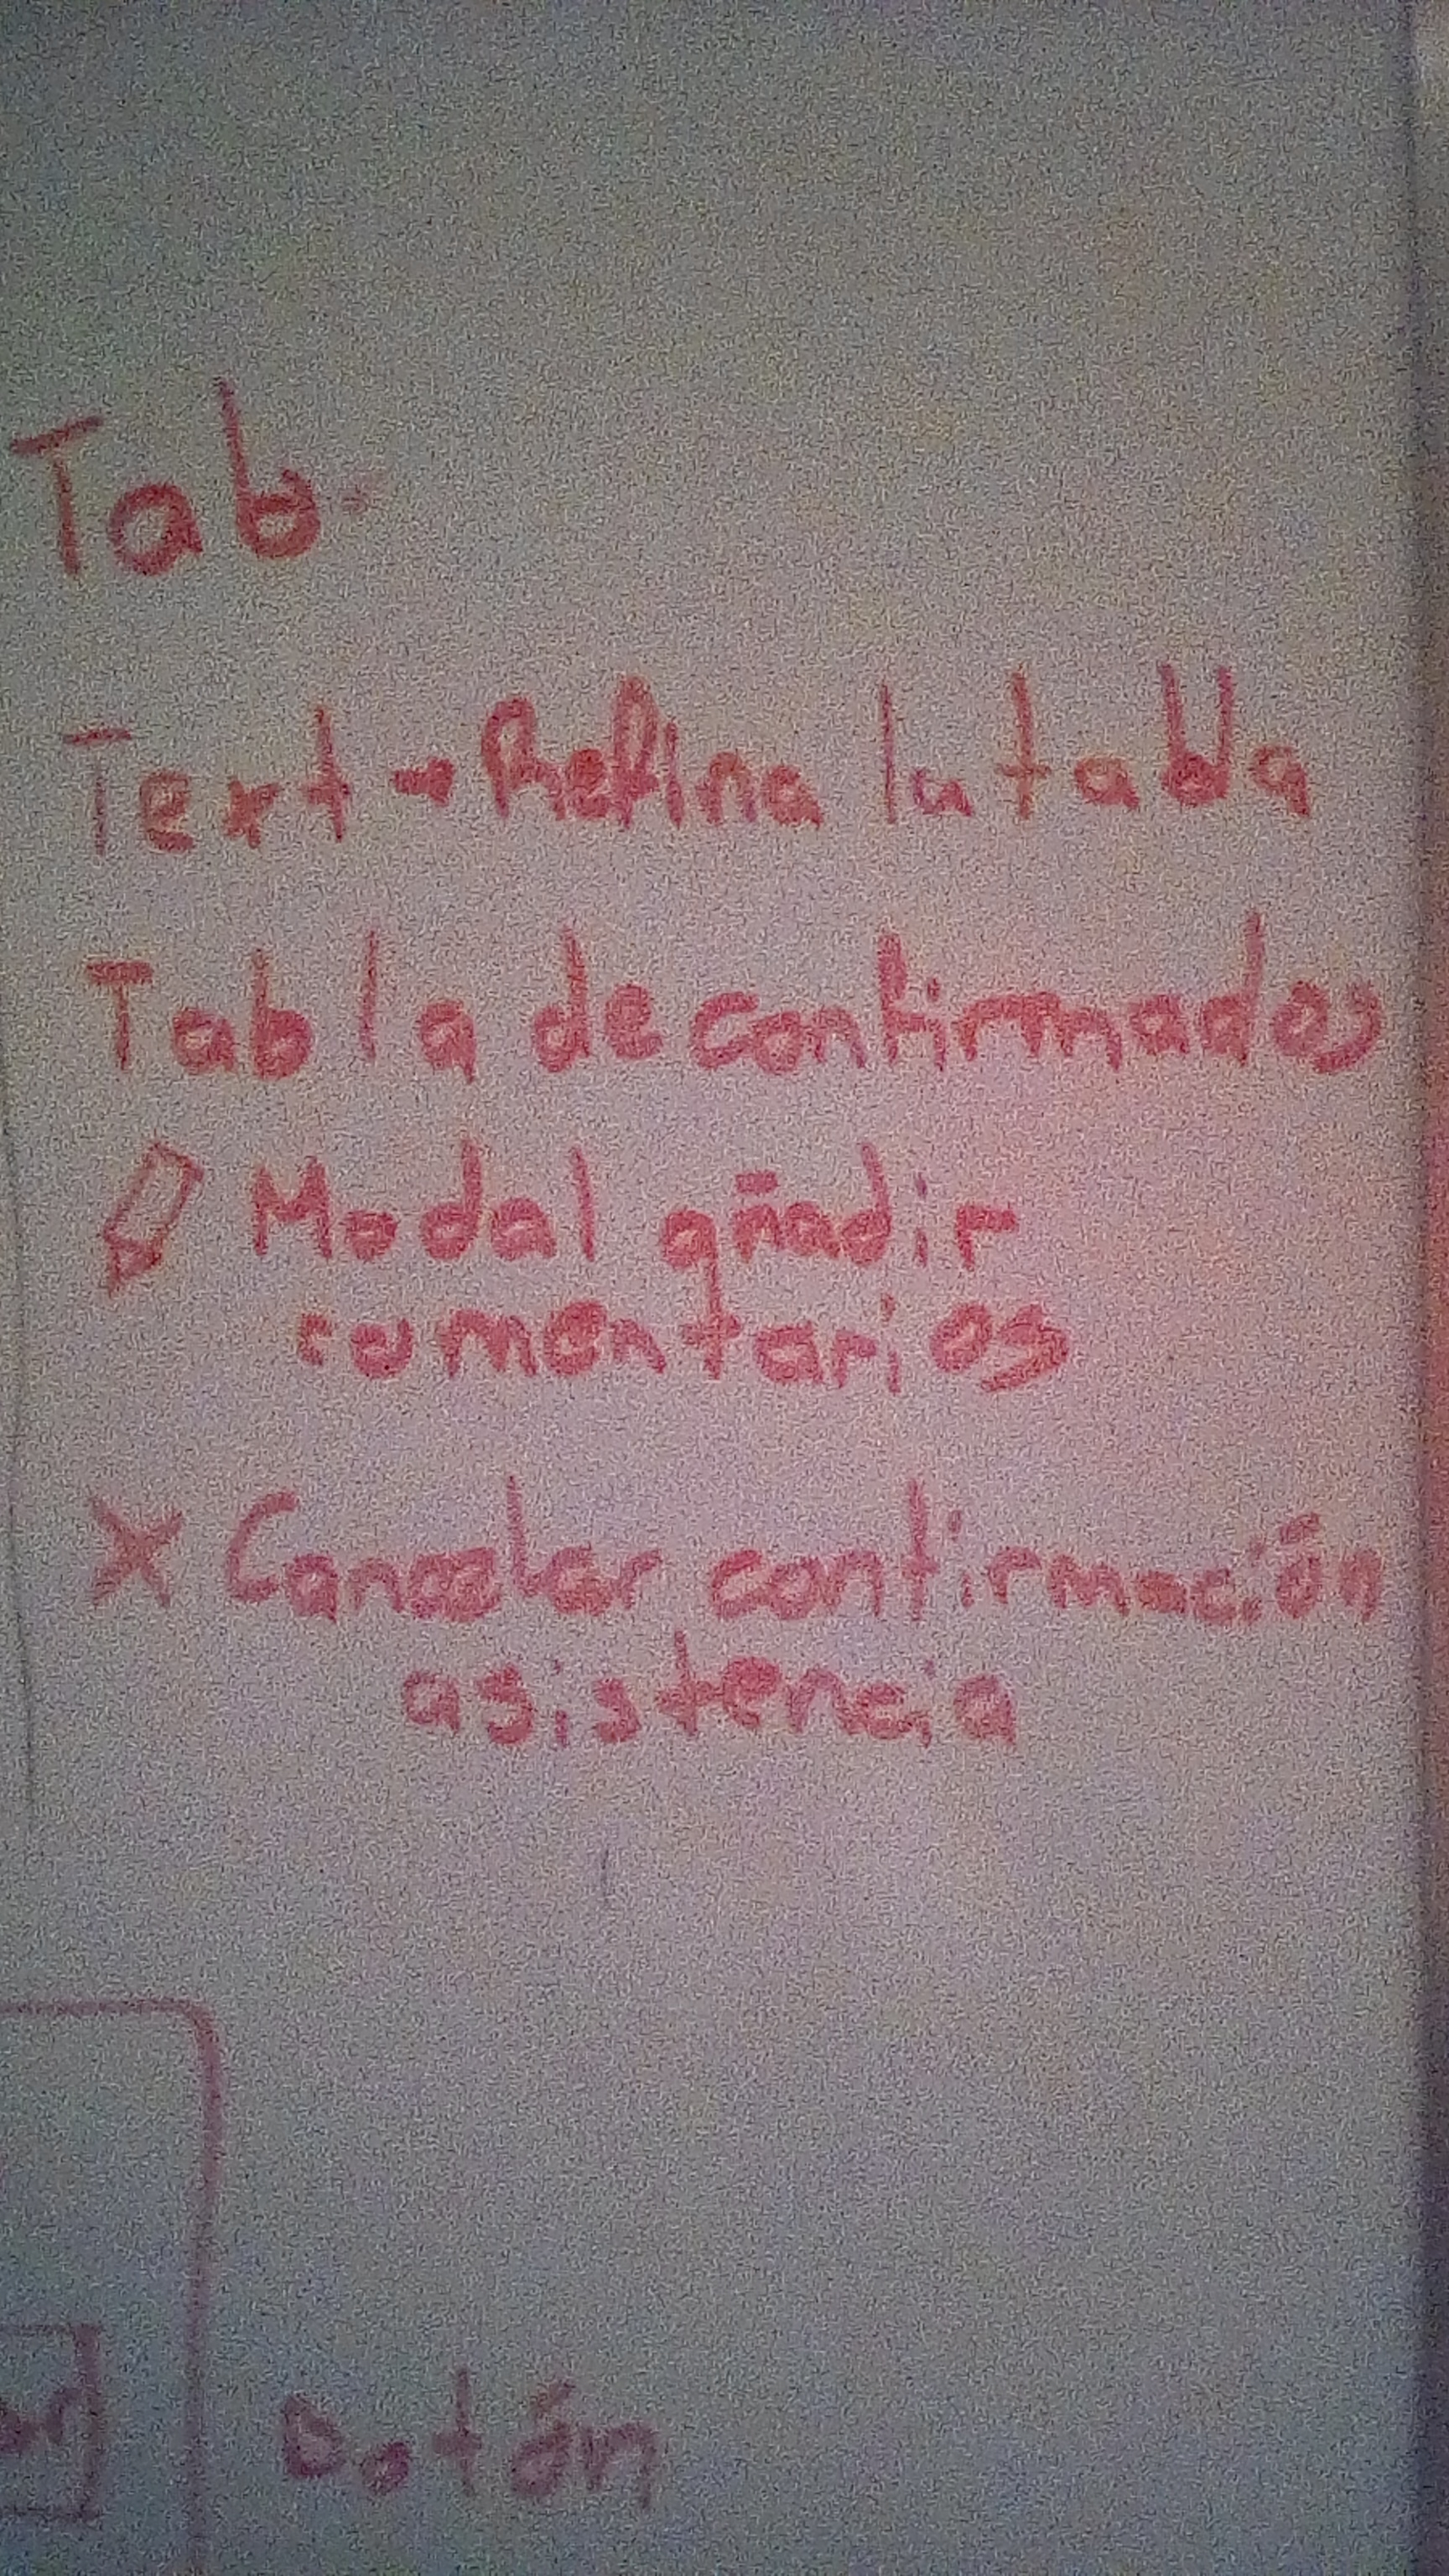 Tab
Text → Refina la tabla
Tabla de confirmados
Modal añadir
comentarios
X Cancelar confirmación
asistencia
Botón